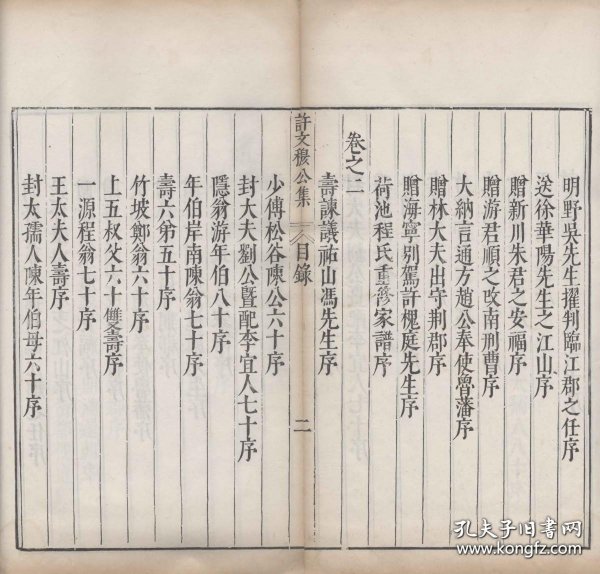 明野吳先生擢判臨江郡之任序
送徐華陽先生之江山序
贈新川朱君之安福序
贈游君順之改南刑曹序
大納言通方趙公奉使魯藩序
贈林大夫出守荆郡序
贈海寧別駕許槐庭先生序
荷池程氏重修家譜序
卷之二
壽諫議祐山馮先生序
許文穆公集
目錄
二
少傅松谷陳公六十序
封大夫劉公暨配李宜人七十序
隱翁游年伯八十序
年伯岸南陳翁七十序
壽六弟五十序
竹坡鄭翁六十序
上五叔父六十雙壽序
一源程翁七十序
王太夫人壽序
封太孺人陳年伯母六十序
孔夫子旧书网
www.kongfz.com